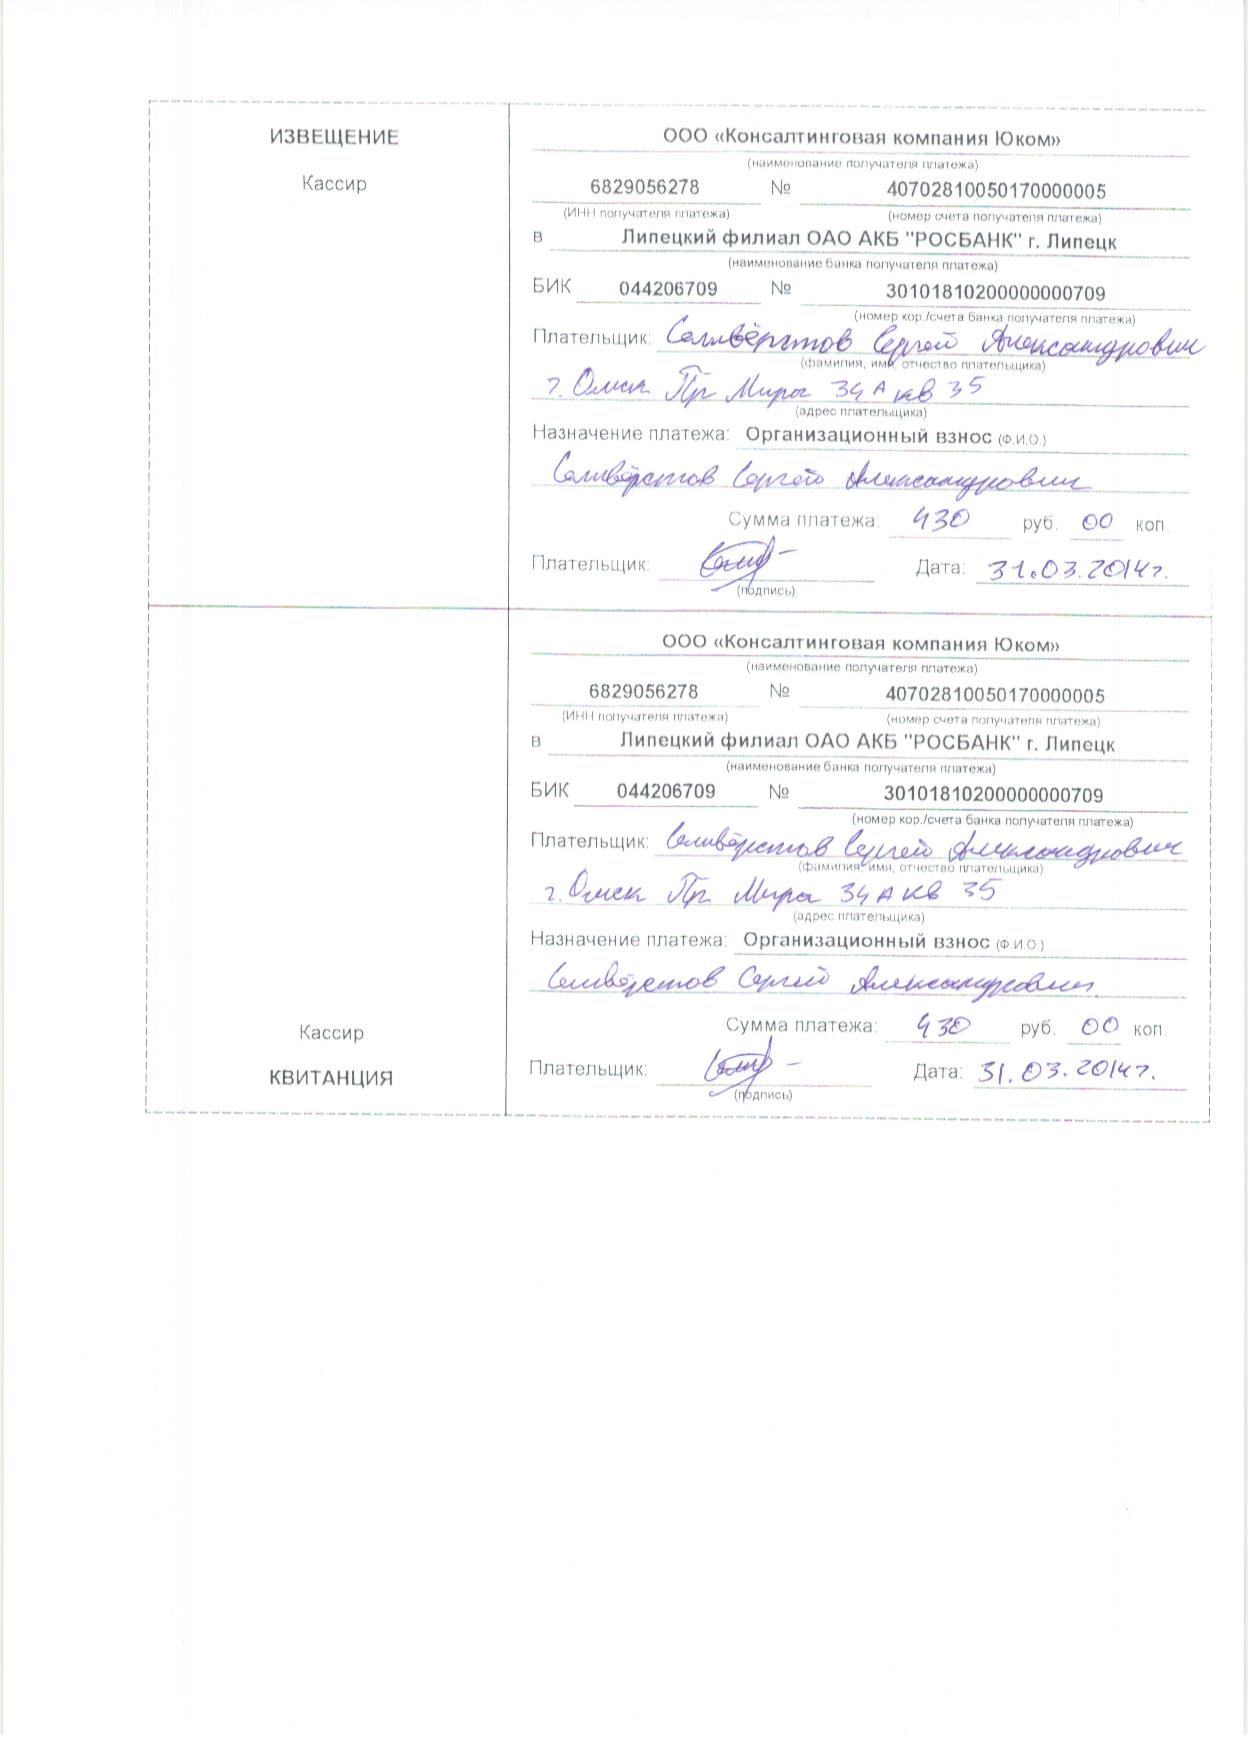 ИЗВЕЩЕНИЕ
Кассир
ООО «Консалтинговая компания Юком»
(наименование получателя платежа)
6829056278 № 40702810050170000005
(ИНН получателя платежа) (номер счета получателя платежа)
в Липецкий филиал ОАО АКБ "РОСБАНК" г. Липецк
(наименование банка получателя платежа)
БИК 044206709 № 30101810200000000709
(номер кор./счета банка получателя платежа)
Плательщик: Селивёрстов Сергей Александрович
(фамилия, имя, отчество плательщика)
г. Омск Пр Мира 34 А кв 35
(адрес плательщика)
Назначение платежа: Организационный взнос (Ф.И.О.)
Селивёрстов Сергей Александрович
Сумма платежа: 430 руб. 00 коп.
Плательщик: Дата: 31.03.2014г.
(подпись)
ООО «Консалтинговая компания Юком»
(наименование получателя платежа)
6829056278 № 40702810050170000005
(ИНН получателя платежа) (номер счета получателя платежа)
в Липецкий филиал ОАО АКБ "РОСБАНК" г. Липецк
(наименование банка получателя платежа)
БИК 044206709 № 30101810200000000709
(номер кор./счета банка получателя платежа)
Плательщик: Селивёрстов Сергей Александрович
(фамилия, имя, отчество плательщика)
г. Омск Пр. Мира 34 А кв 35
(адрес плательщика)
Назначение платежа: Организационный взнос (Ф.И.О.)
Селивёрстов Сергей Александрович.
Сумма платежа: 430 руб. 00 коп.
Плательщик: Дата: 31.03.2014г.
(подпись)
Кассир
КВИТАНЦИЯ